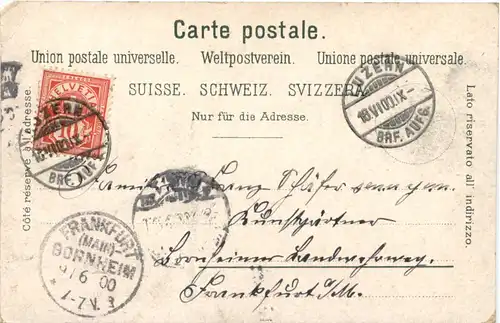 Carte postale.
Union postale universelle. Weltpostverein. Unione postale universale.
SUISSE. SCHWEIZ. SVIZZERA.
Nur für die Adresse.
Côté réservé à l'adresse.
Lato riservato all' indirizzo.
HELVETIA
10
LUZERN
16.VI.00.IX-
BRF. AUFG.
UZERN
16.VI.00.IX-
BRF. AUFG.
Franz Schäfer
Kunstgärtner
Bornheimer Landwehrweg.
Frankfurt a/M.
FRANKFURT
(MAIN)
BORNHEIM
6 00
7-7N. 3